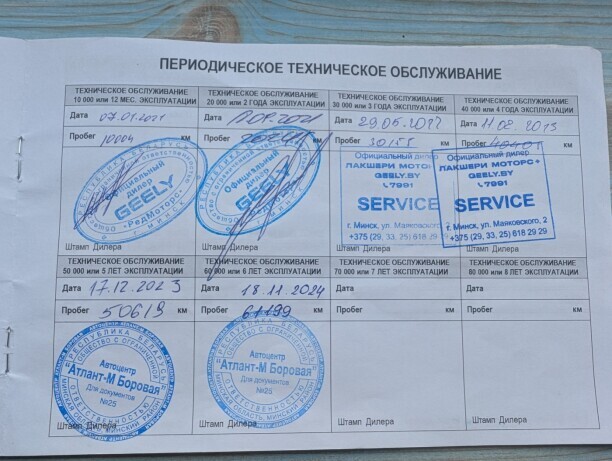 ПЕРИОДИЧЕСКОЕ ТЕХНИЧЕСКОЕ ОБСЛУЖИВАНИЕ
ТЕХНИЧЕСКОЕ ОБСЛУЖИВАНИЕ
10 000 или 12 МЕС. ЭКСПЛУАТАЦИИ
Дата 07.01.2021
Пробег 10004 км
Официальный
дилер
GEELY
"РедМоторс"
МИНСК
Штамп Дилера
ТЕХНИЧЕСКОЕ ОБСЛУЖИВАНИЕ
20 000 или 2 ГОДА ЭКСПЛУАТАЦИИ
Дата
Пробег км
Официальный
дилер
GEELY
"РедМоторс"
Штамп Дилера
ТЕХНИЧЕСКОЕ ОБСЛУЖИВАНИЕ
30 000 или 3 ГОДА ЭКСПЛУАТАЦИИ
Дата
Пробег км
Официальный дилер
ЛАКШЕРИ МОТОРС
GEELY.BY
7991
SERVICE
г. Минск, ул. Маяковского,
+375 (29, 33, 25) 618
Штамп Дилера
ТЕХНИЧЕСКОЕ ОБСЛУЖИВАНИЕ
40 000 или 4 ГОДА ЭКСПЛУАТАЦИИ
Дата
Пробег км
Официальный дилер
ЛАКШЕРИ МОТОРС
GEELY.BY
7991
SERVICE
г. Минск, ул. Маяковского, 2
+375 (29, 33, 25) 618 29 29
ТЕХНИЧЕСКОЕ ОБСЛУЖИВАНИЕ
50 000 или 5 ЛЕТ ЭКСПЛУАТАЦИИ
Дата 17.12.2023
Пробег 50619 км
РЕСПУБЛИКА БЕЛАРУСЬ
Автоцентр
"Атлант-М Боровая"
Для документов
№25
Штамп Дилера
ТЕХНИЧЕСКОЕ ОБСЛУЖИВАНИЕ
60 000 или 6 ЛЕТ ЭКСПЛУАТАЦИИ
Дата 18.11.2024
Пробег 61199 км
РЕСПУБЛИКА БЕЛАРУСЬ
Автоцентр
"Атлант-М Боровая"
Для документов
№25
Штамп Дилера
ТЕХНИЧЕСКОЕ ОБСЛУЖИВАНИЕ
70 000 или 7 ЛЕТ ЭКСПЛУАТАЦИИ
Дата
Пробег км
Штамп Дилера
ТЕХНИЧЕСКОЕ ОБСЛУЖИВАНИЕ
80 000 или 8 ЛЕТ ЭКСПЛУАТАЦИИ
Дата
Пробег км
Штамп Дилера